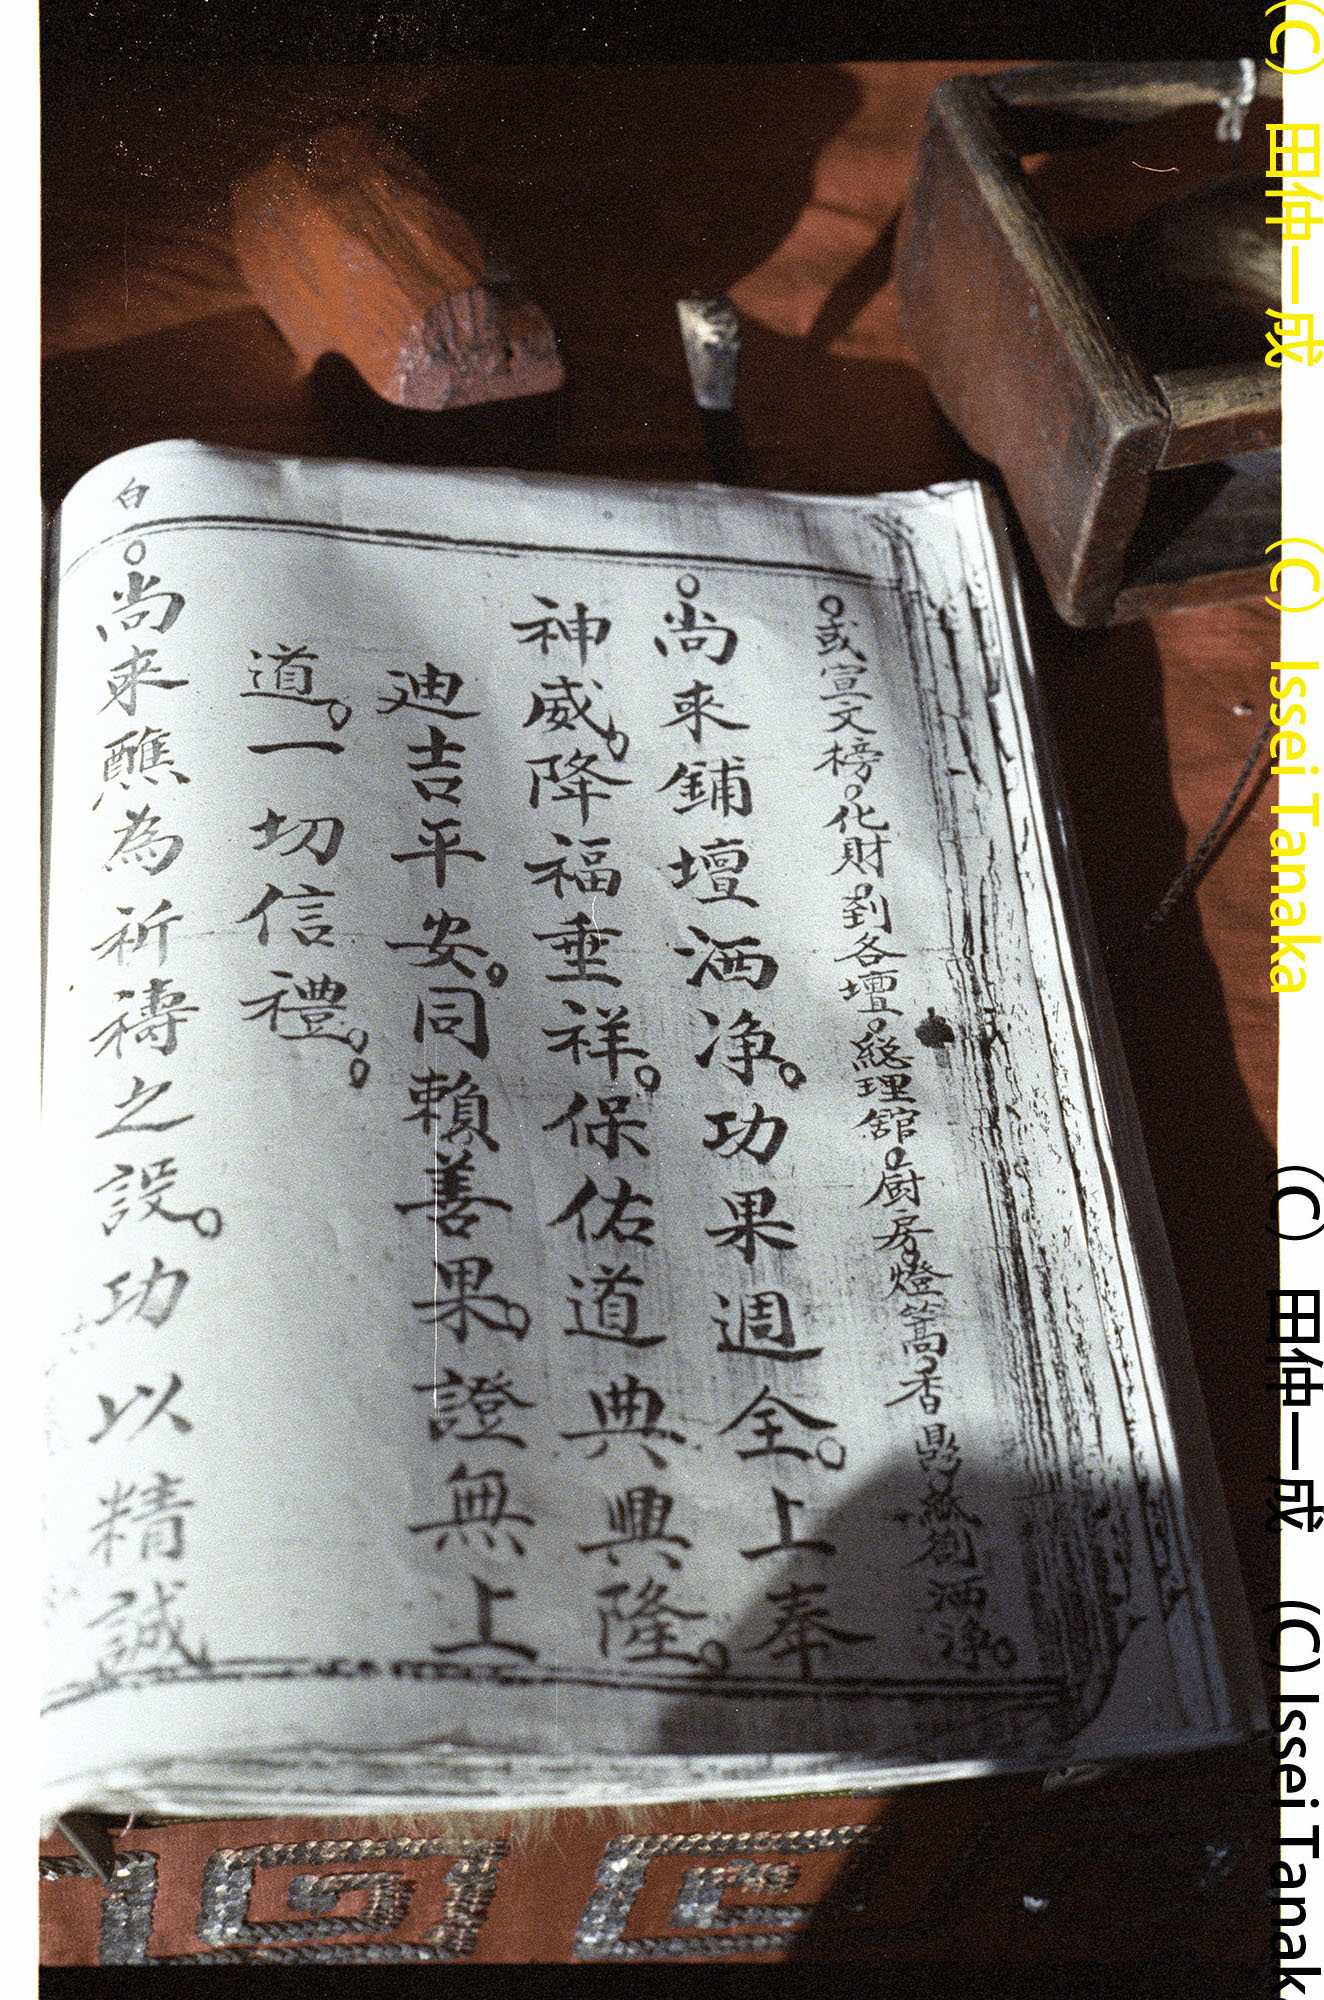 。或宣文榜。化財。到各壇。総理舘。厨房。燈篙。香鼎。紙芻洒淨。
。尚來鋪壇洒净。功果週全。上奉
神威。降福垂祥。保佑道典興隆。
迪吉平安。同賴善果。證無上
道。一切信禮。。
白
。尚來醮為祈禱之設。功以精誠
(C) 田仲一成 (C) Issei Tanaka
(C) 田仲一成 (C) Issei Tanak